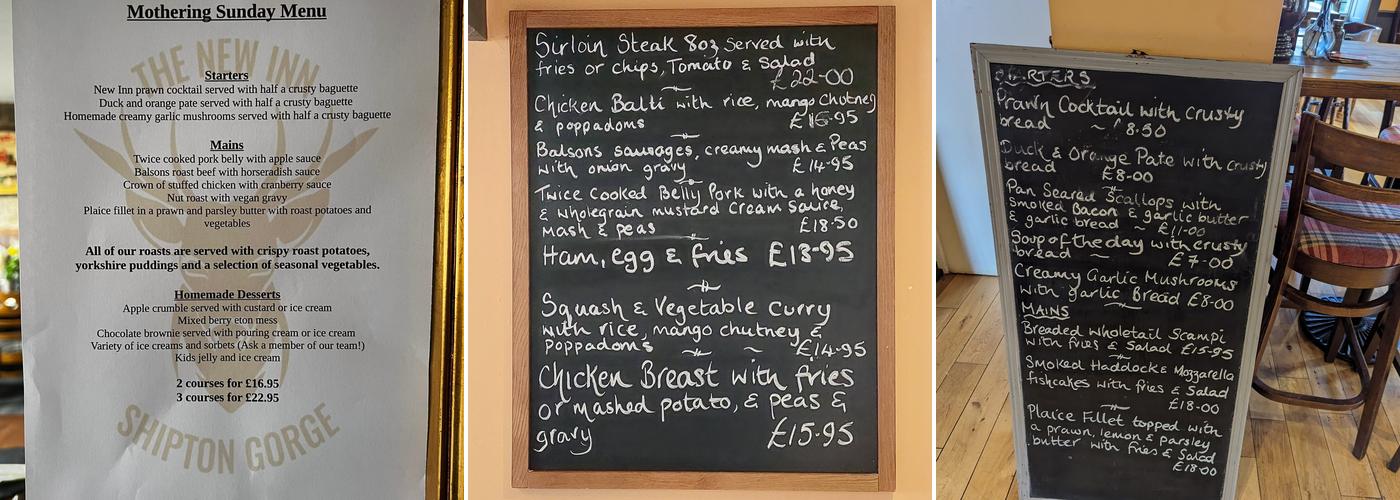 Mothering Sunday Menu
THE NEW INN
Starters
New Inn prawn cocktail served with half a crusty baguette
Duck and orange pate served with half a crusty baguette
Homemade creamy garlic mushrooms served with half a crusty baguette
Mains
Twice cooked pork belly with apple sauce
Balsons roast beef with horseradish sauce
Crown of stuffed chicken with cranberry sauce
Nut roast with vegan gravy
Plaice fillet in a prawn and parsley butter with roast potatoes and
vegetables
All of our roasts are served with crispy roast potatoes,
yorkshire puddings and a selection of seasonal vegetables.
Homemade Desserts
Apple crumble served with custard or ice cream
Mixed berry eton mess
Chocolate brownie served with pouring cream or ice cream
Variety of ice creams and sorbets (Ask a member of our team!)
Kids jelly and ice cream
2 courses for £16.95
3 courses for £22.95
SHIPTON GORGE
Sirloin Steak 8oz Served with
fries or chips, Tomato & Salad
£22-00
Chicken Balti with rice, mango chutney
& poppadoms £16-95
Balsons sausages, creamy mash & Peas
with onion gravy £14-95
Twice cooked Belly Pork with a honey
& wholegrain mustard cream sauce,
mash & peas £18-50
Ham, egg & fries £13-95
Squash & Vegetable curry
with rice, mango chutney &
Poppadoms £14-95
Chicken Breast with fries
or mashed potato, & peas &
gravy £15-95
STARTERS
Prawn Cocktail with Crusty
bread ~ £8.50
Duck & Orange Pate with crusty
bread £8-00
Pan Seared Scallops with
smoked Bacon & garlic butter
& garlic bread ~ £11-00
Soup of the day with crusty
bread ~ £7-00
Creamy Garlic Mushrooms
with garlic Bread £8-00
MAINS
Breaded Wholetail Scampi
with fries & Salad £15-95
Smoked Haddock & Mozzarella
fishcakes with fries & Salad
£18-00
Plaice Fillet topped with
a prawn, lemon & parsley
butter with fries & Salad
£18-00